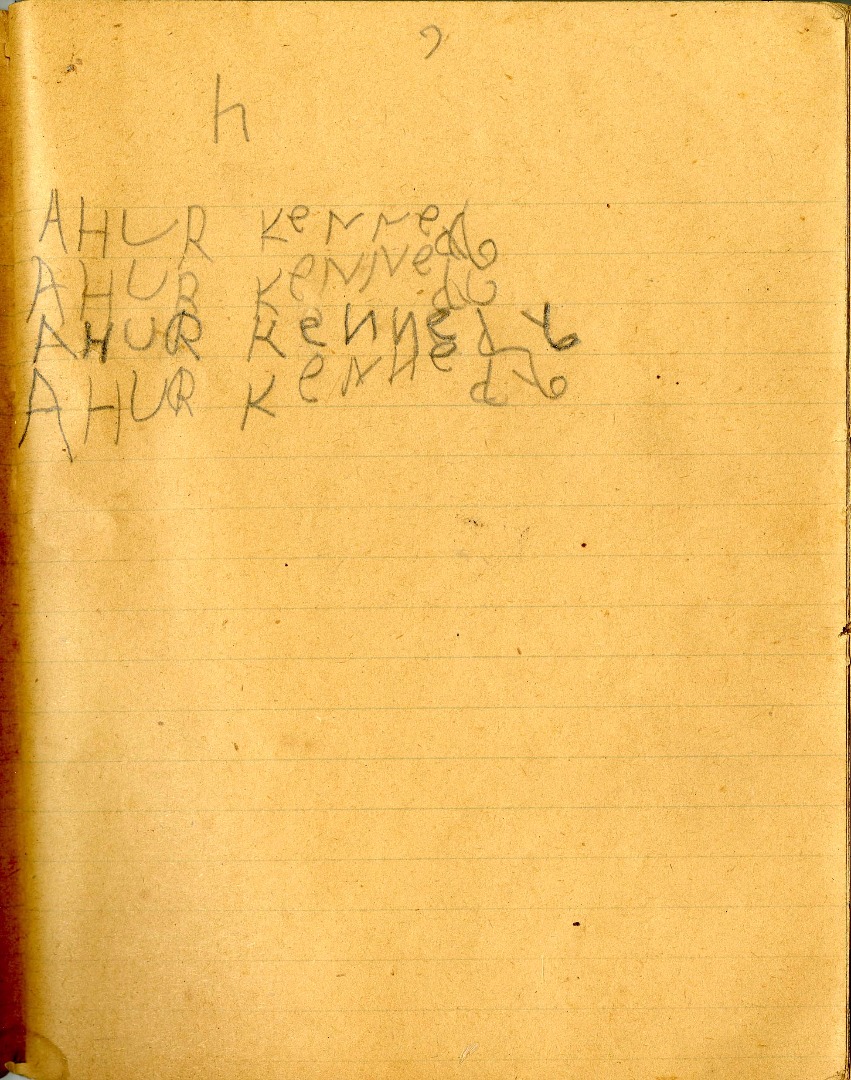 h
AHUR Kennedy
AHUR Kennedy
AHUR Kennedy
AHUR Kennedy